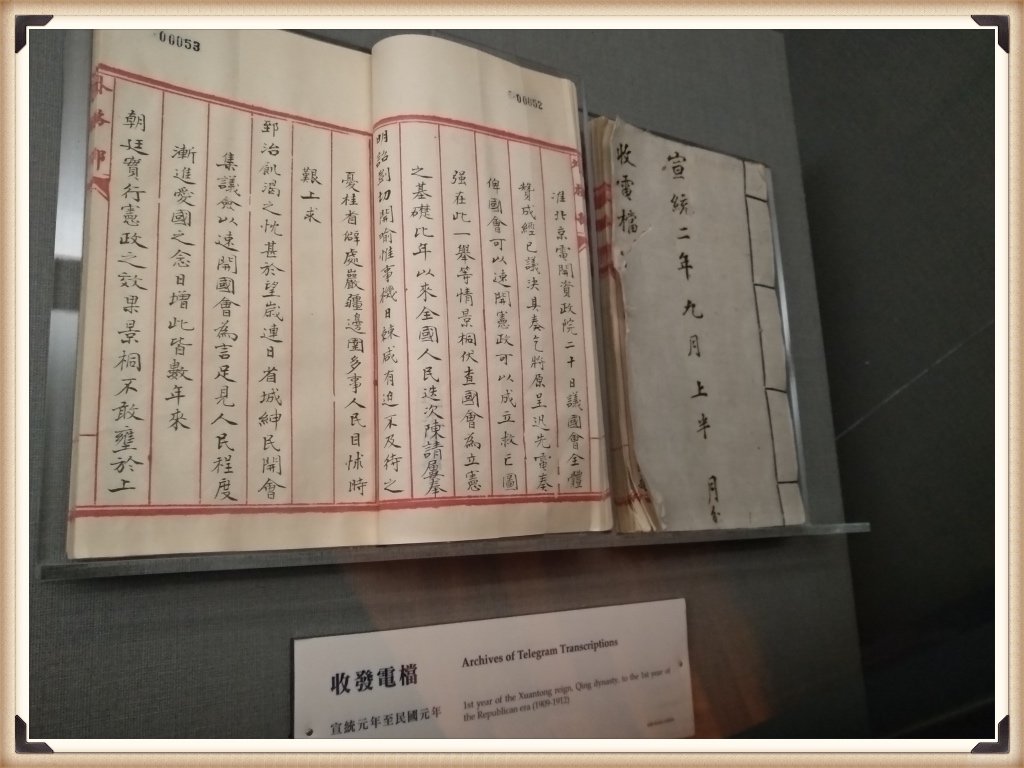 00652
准北京電開資政院二十日議國會全體
贊成經已議決具奏乞將原呈迅先電奏
俾國會可以速開憲政可以成立救亡圖
强在此一舉等情景桐伏查國會為立憲
之基礎比年以來全國人民迭次陳請屢奉
明詔剴切開喻惟事機日棘咸有迫不及待之
00653
憂桂省僻處巖疆邊圉多事人民目怵時
艱上求
郅治飢渴之忱甚於望歲連日省城紳民開會
集議僉以速開國會為言足見人民程度
漸進愛國之念日增此皆數年來
朝廷實行憲政之效果景桐不敢壅於上
外務部
宣統二年九月上半月分
收電檔
收發電檔
宣統元年至民國元年
Archives of Telegram Transcriptions
1st year of the Xuantong reign, Qing dynasty, to the 1st year of
the Republican era (1909-1912)